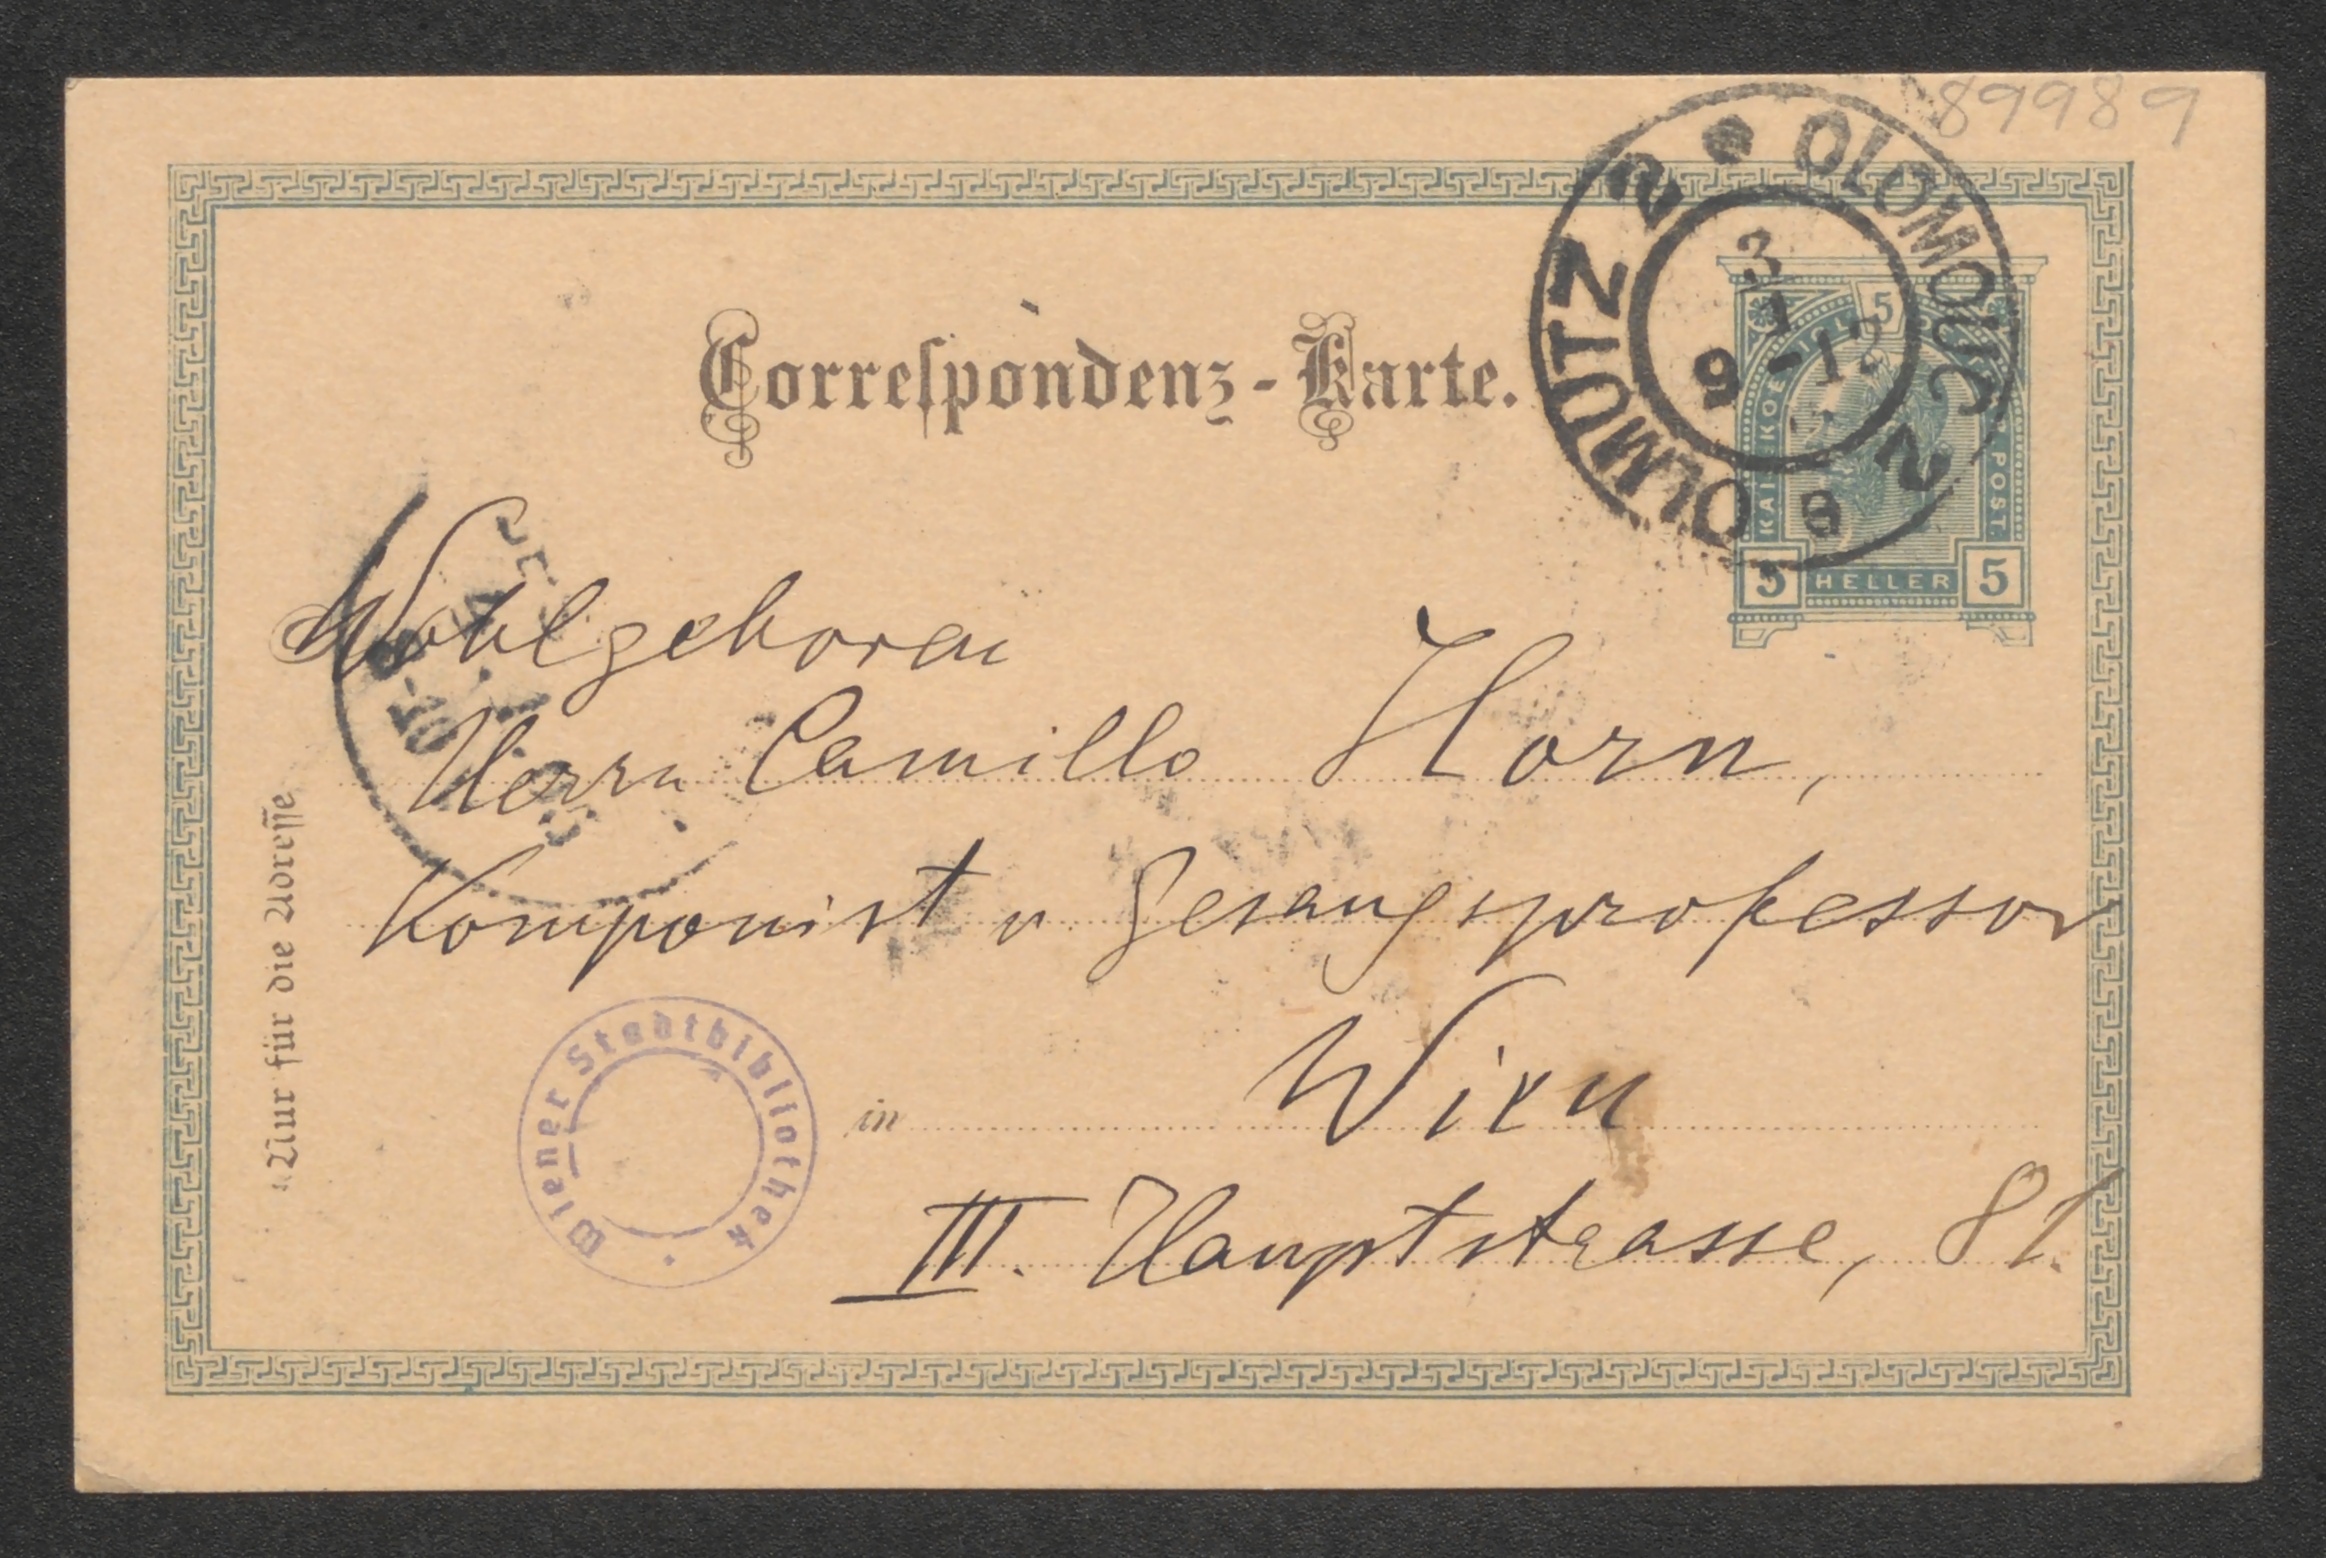 89989
OLMÜTZ 2 * OLOMOUC 2
3
1
9-12
8
KAIS. KOENIGL. POST.
5
5 HELLER 5
Correspondenz-Karte.
Wohlgeboren
Herrn Camillo Horn,
Komponist u Gesangsprofessor
in Wien
III. Hauptstrasse, 81.
Nur für die Adresse
Wiener Stadtbibliothek